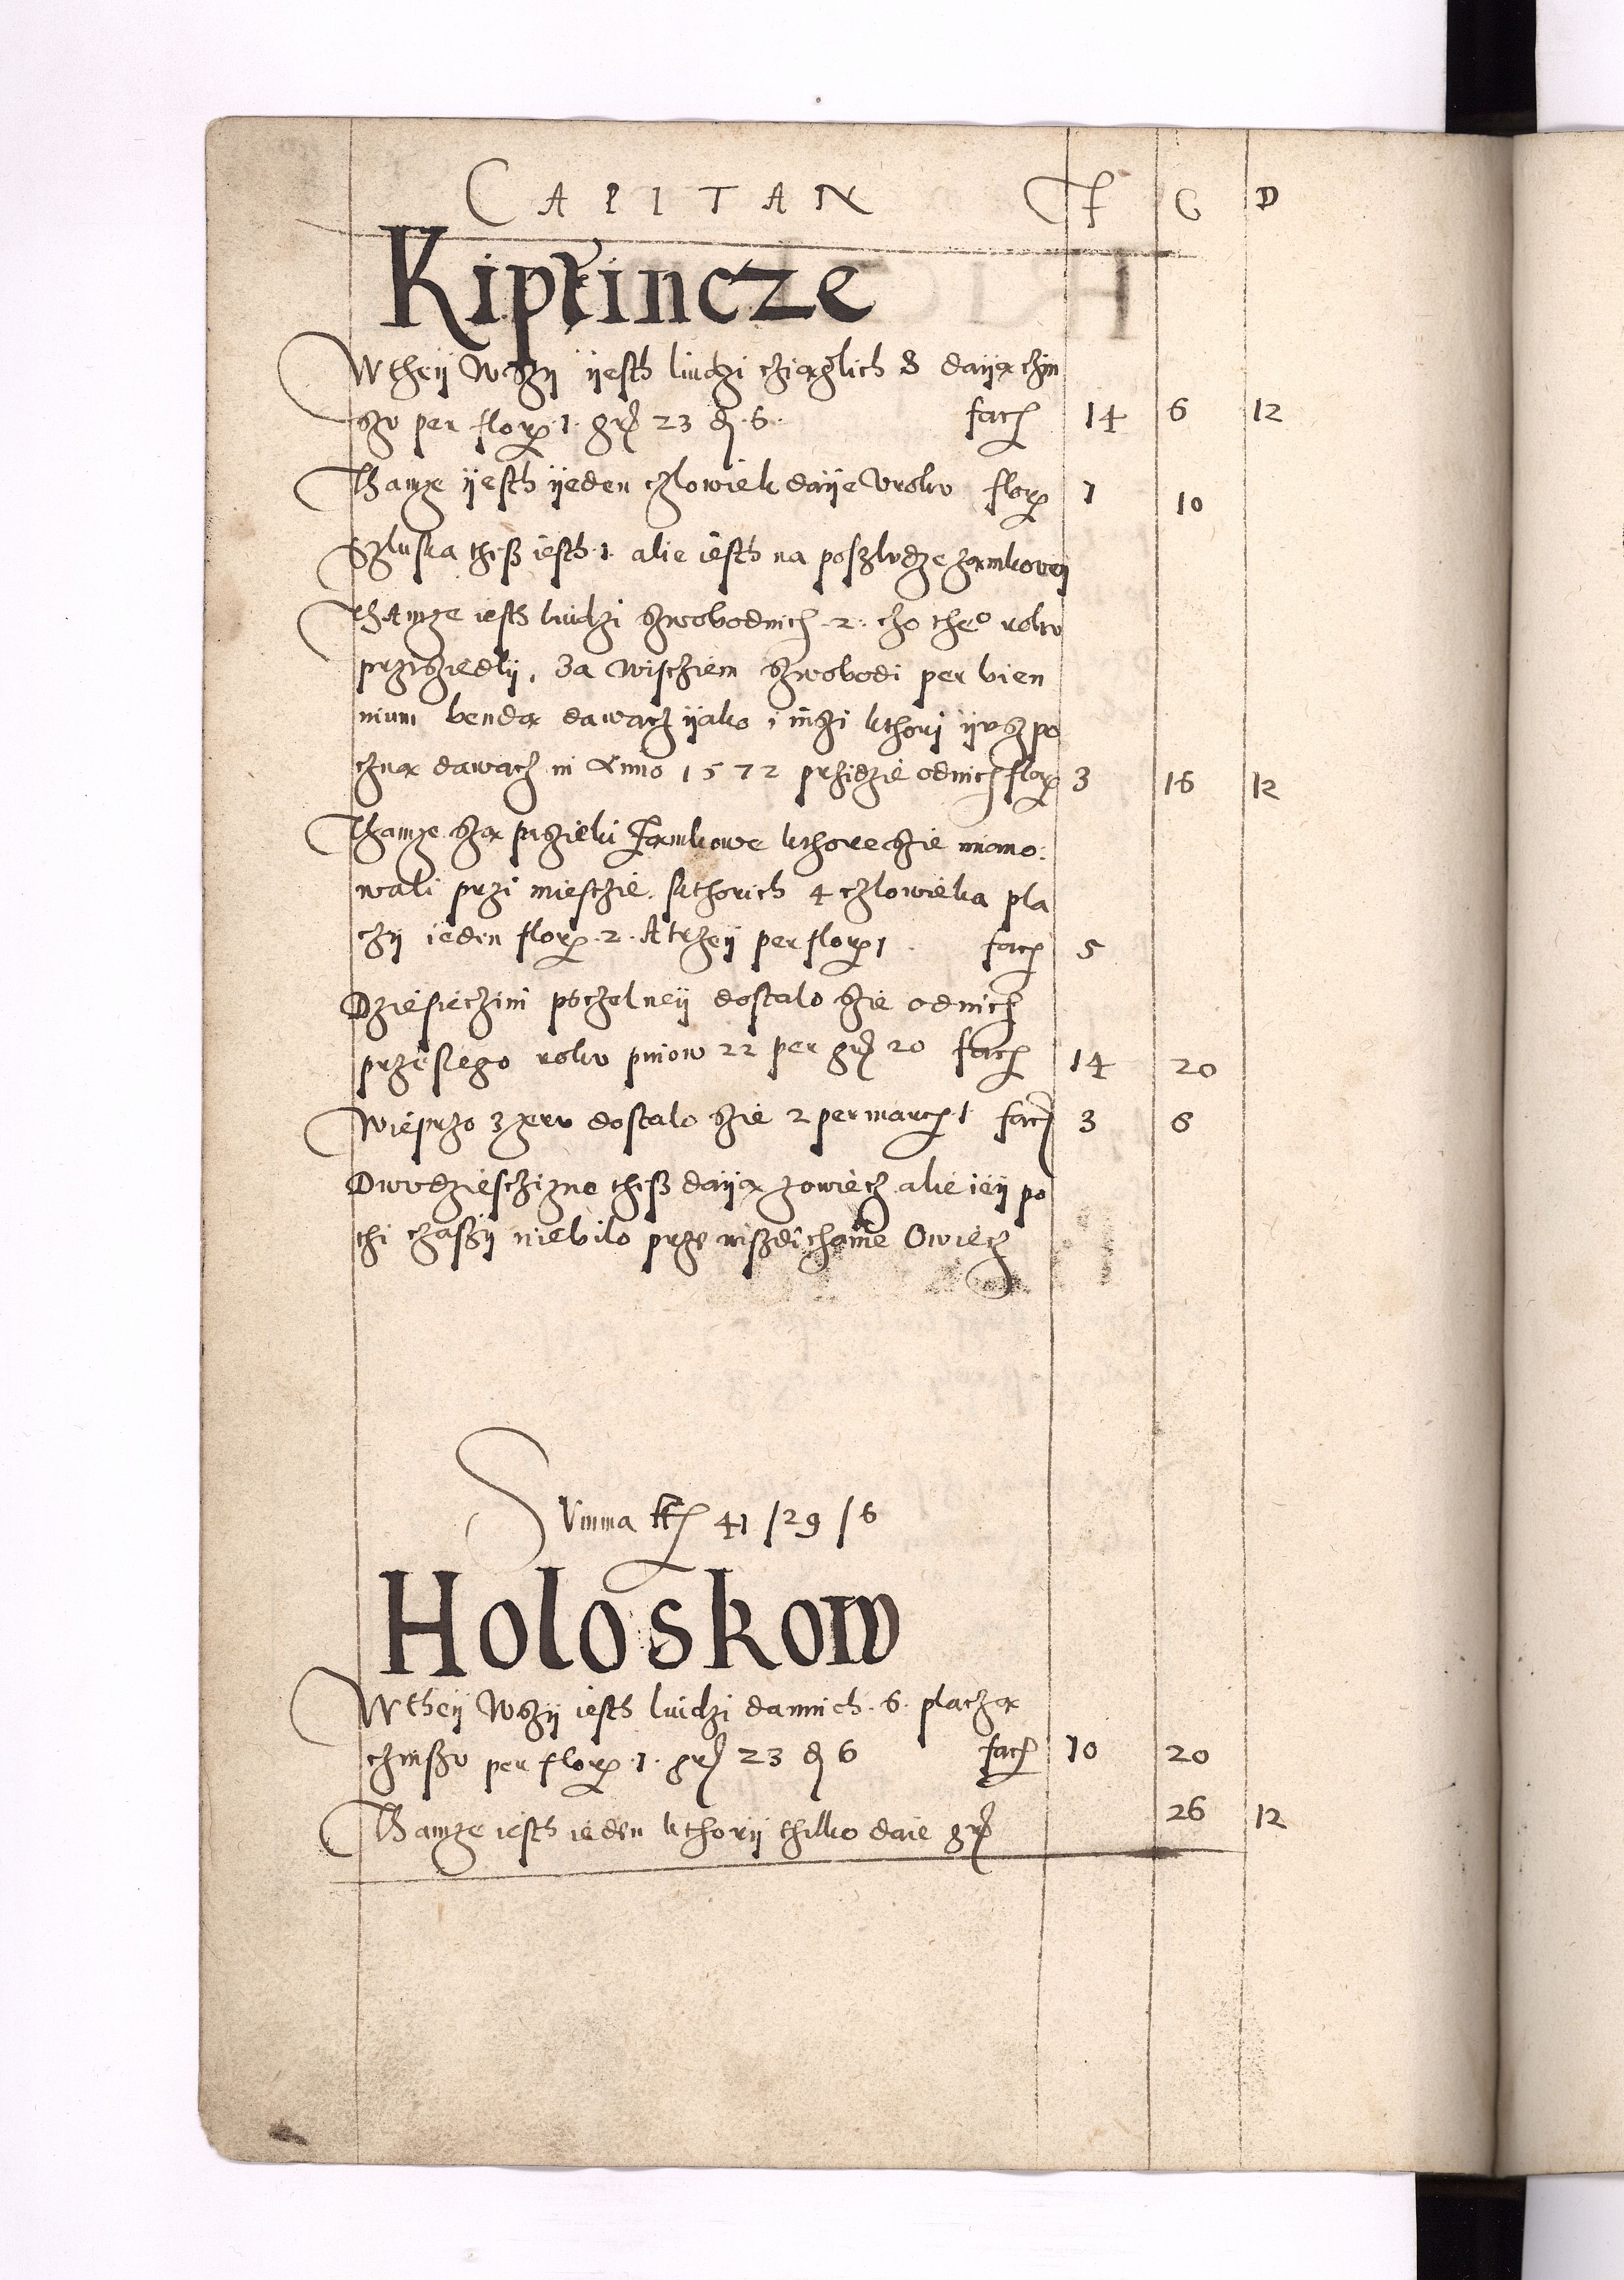 CAPITAN F G D
Kiptincze
W theÿ Wszÿ ÿesth liudzi cziąglich 8 daÿą czin
szv per flor. 1. gr. 23 d. 6. fac. 14 6 12
Thamże ÿesth ÿeden człowiek daÿe Vrokv flor. 1 10
Szluska thesz iesth 1. alie iesth na poszludze zamkoveÿ
Thamże iesth liudzi szwobodnich 2. czo the° rokv
przisziedlÿ, Za Wisciem szwobodi per bien
nium bendą dawacz ÿako i inszi kthorÿ ÿvsz po
czną dawacz in Anno 1572 przidzie odnich flor. 3 16 12
Thamże szą pasieki zamkowe kthore szie miano.
wali przi miesczie. kthorich 4 człowieka pla
czÿ ieden flor. 2. A trzeÿ per flor. 1 fac. 5
Dziesieczini pczelneÿ dostalo szie odnich
przeslego rokv pniow 22 per gr. 20 fac. 14 20
Wieprzo z żerv dostalo szie 2 per marc. 1 fac. 3 6
Dwvdzieschizne thesz daÿą z owiecz alie ieÿ po
thi czaszÿ niebilo prze niszdichanie Owiecz
Svmma ff. 41 / 29 / 6
Holoskow
W theÿ Wszÿ iesth liudzi dannich 6. placzą
czinszv per flor. 1. gr. 23 d. 6 fac. 10 20
Thamże iesth ieden kthorÿ thilko daie gr. 26 12